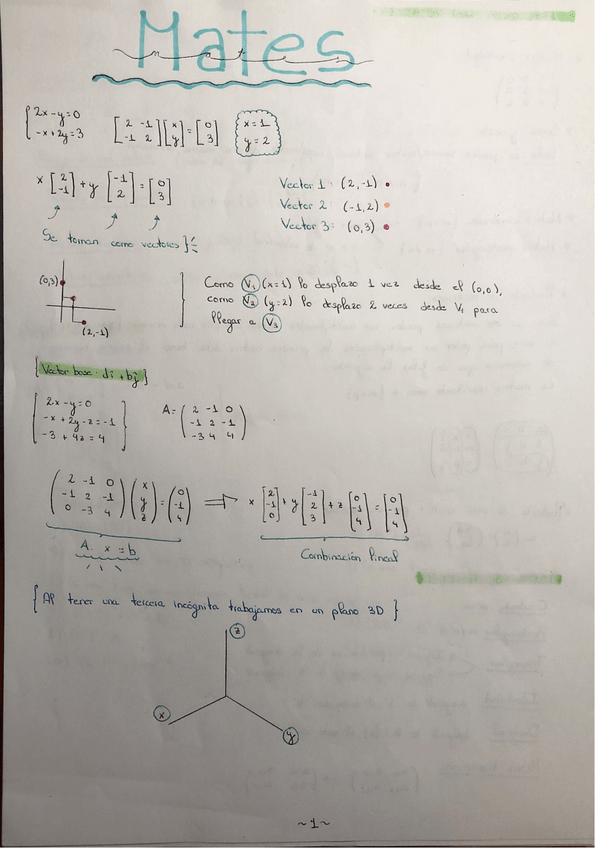 Mates
mates
2x-y=0
-x+2y=3
[2 -1
-1 2] [x
y] = [0
3]
x=1
y=2
x [2
-1] + y [-1
2] = [0
3]
Vector 1: (2,-1)
Vector 2: (-1,2)
Vector 3: (0,3)
Se toman como vectores
(0,3)
(2,-1)
Como V1 (x=1) lo desplazo 1 vez desde el (0,0),
como V2 (y=2) lo desplazo 2 veces desde V1 para
llegar a V3
[Vector base: di + bj]
2x-y=0
-x+2y-z=-1
-3+4z=4
A=(2 -1 0
-1 2 -1
-3 4 4)
(2 -1 0
-1 2 -1
0 -3 4) (x
y
z) = (0
-1
4) ⟹ x [2
-1
0] + y [-1
2
3] + z [0
-1
4] = [0
-1
4]
A. x = b
Combinación lineal
{Al tener una tercera incógnita trabajamos en un plano 3D}
z
x
y
~1~